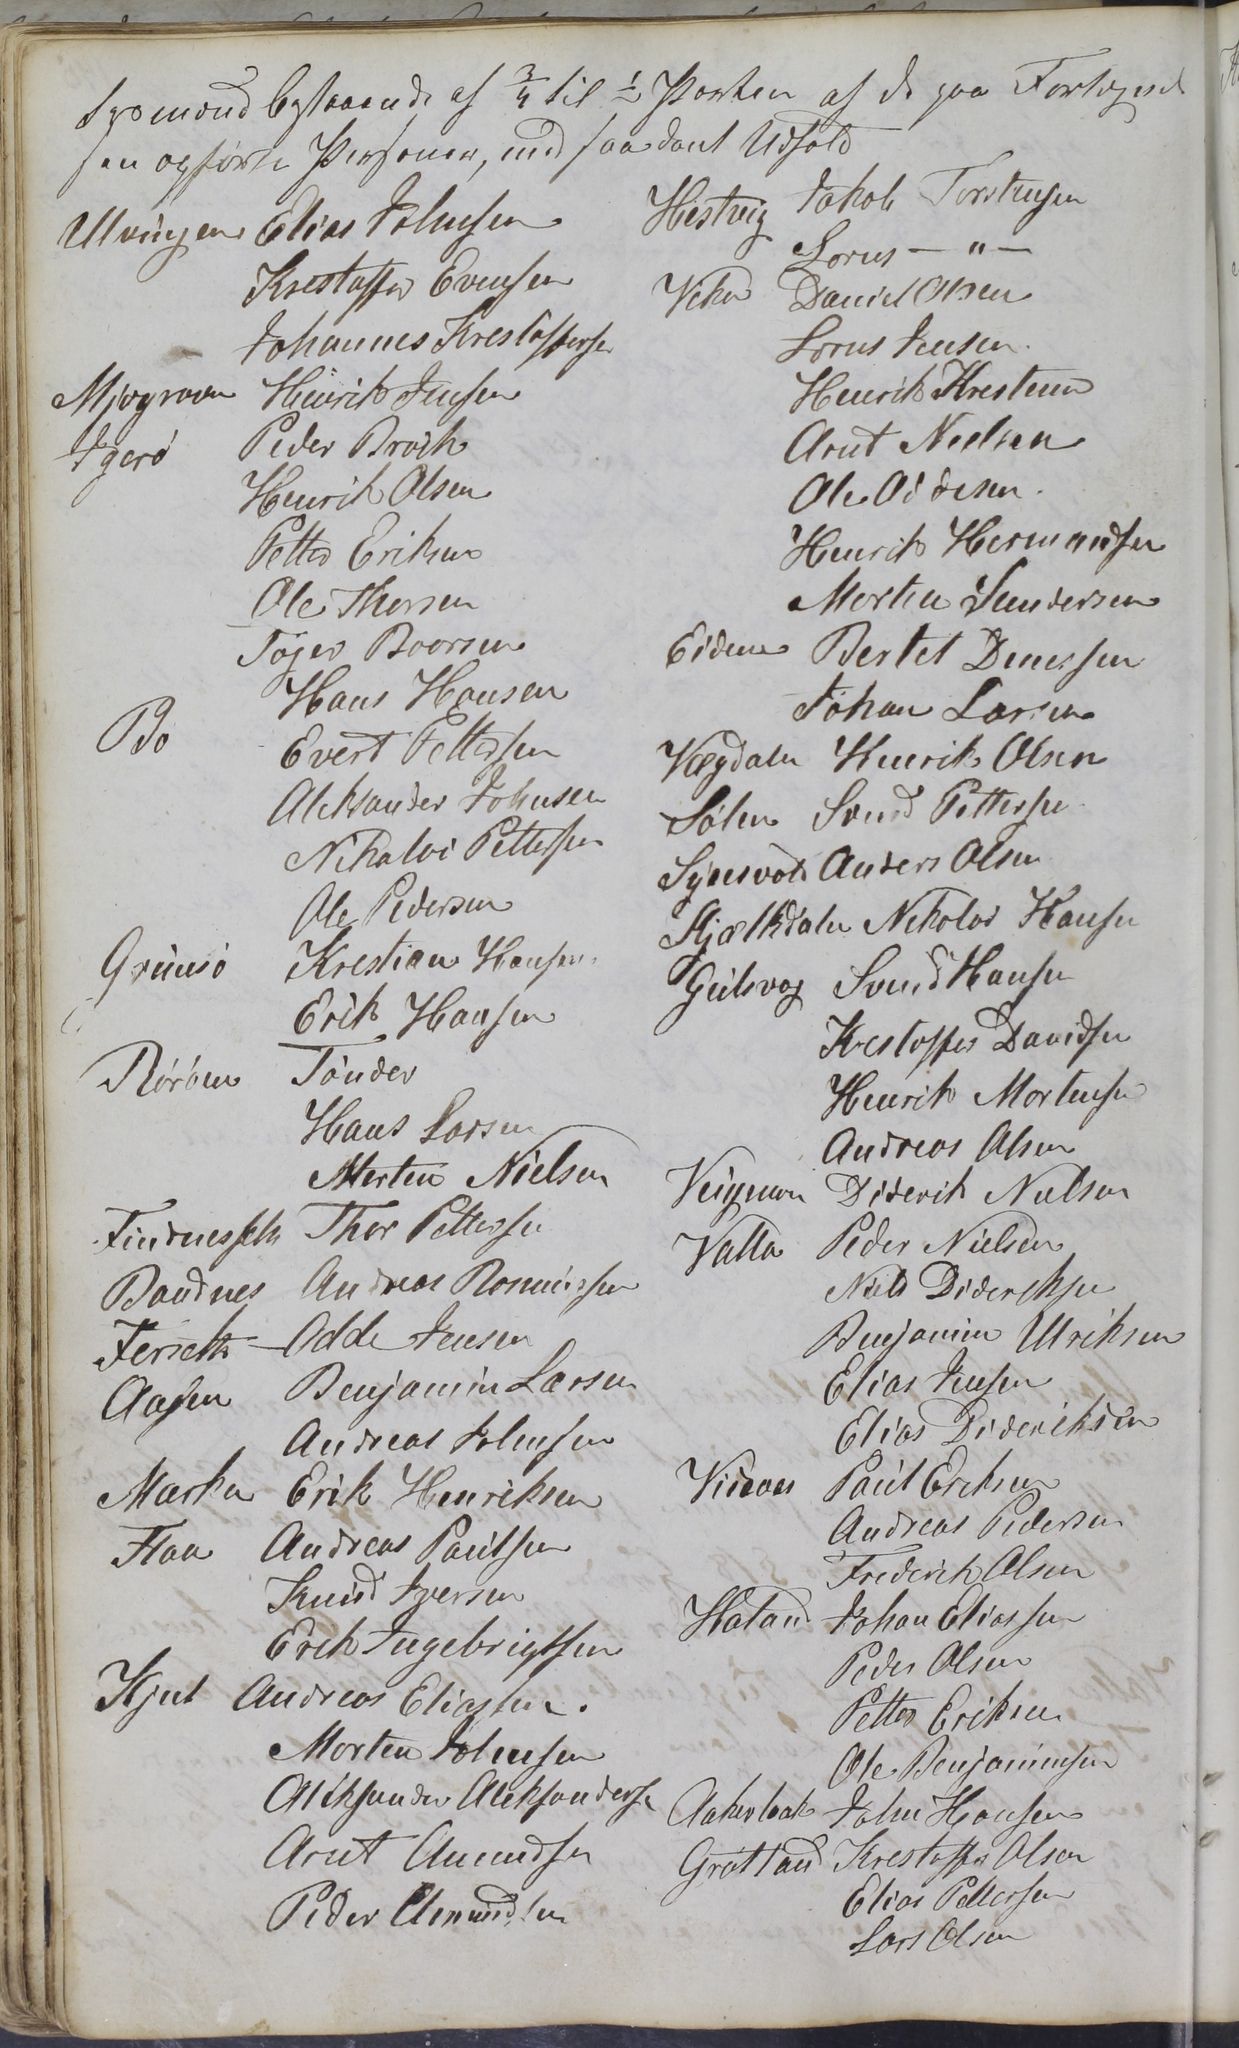 bestaaende af 3/4 til 1/2 Parten af de paa Fortegnel
sen opførte Personer, med saadant Udfald
Ulvingen Elias Johnsen
Krestoffer Evensen
Johannes Krestoffers
Henrik Jensen
Igerø Peder Broch
Henrik Olsen
Petter Eriksen
Ole Thorsen
Tøger Boorsen
Hans Hansen
Bø Evert Pettersen
Aleksander Johnsen
Nikolai Pettersen
Ole Pedersen
Grimsø Krestian Hansen
Erik Hansen
Rørøen Tønder
Hans Larsen
Morten Nielsen
Thor Pettersen
Baadnes Andreas Rasmussen
Odde Jensen
Aasen Benjamin Larsen
Andreas Johnsen
Marken Erik Henriksen
Flaa Andreas Paulsen
Knud Iversen
Erik Ingebrigtsen
Andreas Eliassen.
Morten Johnsen
Aleksander Aleksanders
Arnt Amundsen
Peder Amundsen
Hestvig Jakob Torstensen
Lorns — " —
Viken Daniel Olsen
Lorns Jensen.
Henrik Kresten
Arnt Nielsen
Ole Oddesen.
Henrik Hermandsen
Morten Sundersen
Eidem Bertel Dinessen
Johan Larsen
Vægdalen Henrik Olsen
Sølen Svend Pettersen
Anders Olsen
Nikolai Hansen
Gulsvog Svend Hansen
Krestoffer Davidsen
Henrik Mortensen
Andreas Olsen
Diderik Nielsen
Valla Peder Nielsen
Niels Dideriksen
Benjamin Ulriksen
Elias Jensen
Elias Dideriksen
Visaas Paul Eriksen
Andreas Pedersen
Frederik Olsen
Hatand Johan Eliassen
Peder Olsen
Petter Eriksen
Ole Benjaminsen
John Hansen
Grøttand Krestoffer Olsen
Elias Pettersen
Lars Olsen